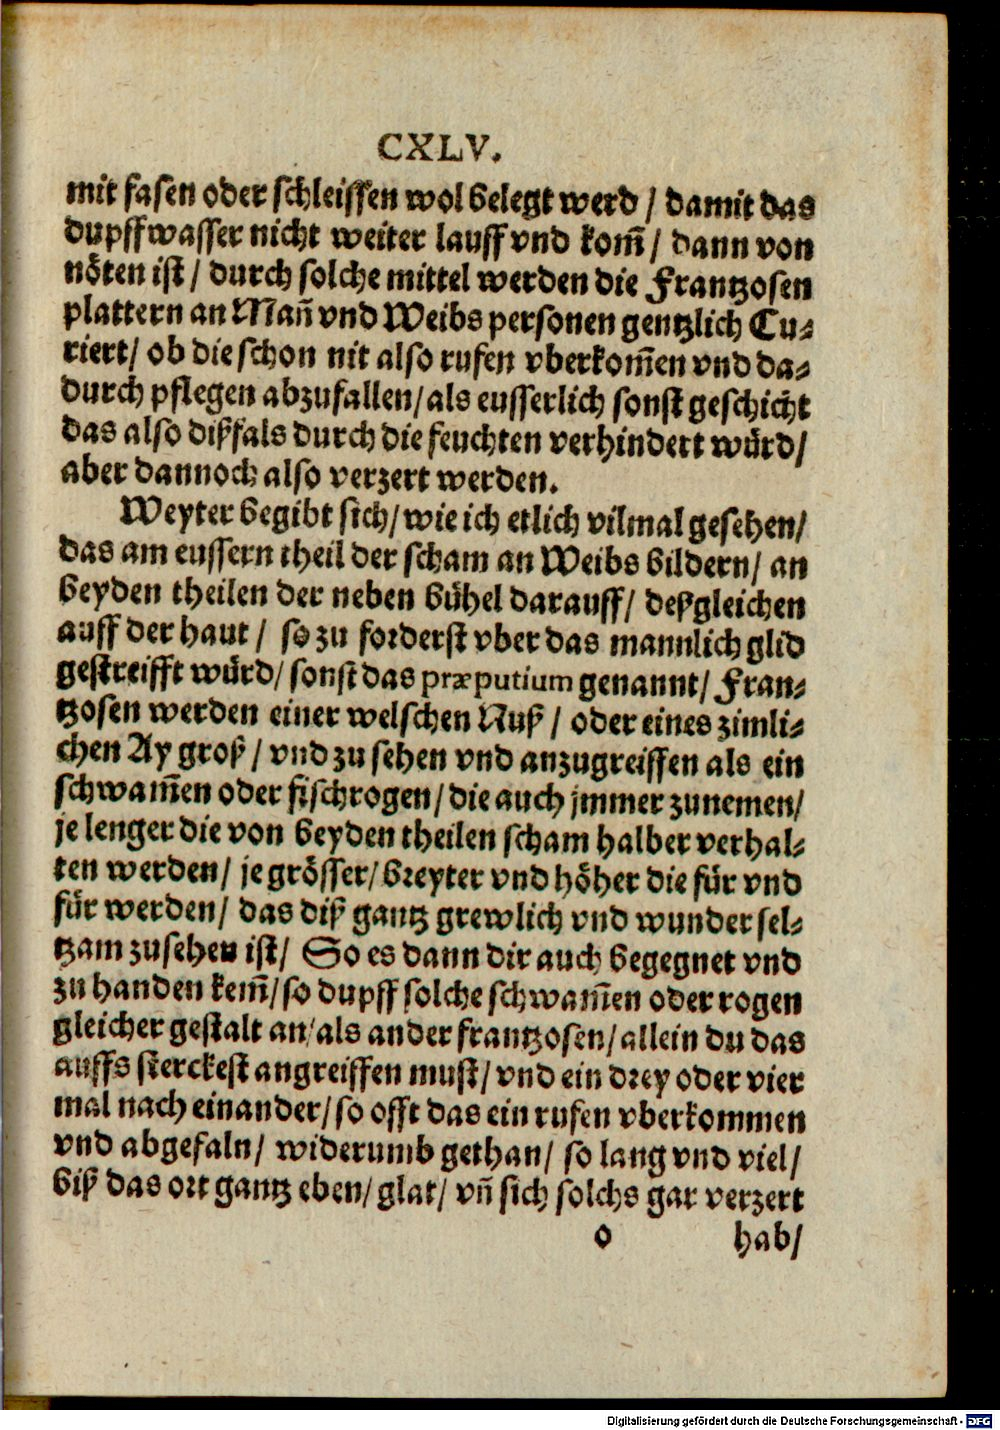 CXLV.
mit fasen oder schleissen wol belegt werd / damit das
dupffwasser nicht weiter lauff vnd kom̃ / dann von
nöten ist / durch solche mittel werden die Frantzosen
plattern an Man̄ vnd Weibs personen gentzlich Cu⸗
riert / ob die schon nit also rufen vberkom̃en vnd da⸗
durch pflegen abzufallen / als eusserlich sonst geschicht
das also dißfals durch die feuchten verhindert würd /
aber dannoch also verzert werden.
Weyter begibt sich / wie ich etlich vilmal gesehen /
das am eussern theil der scham an Weibs bildern / an
beyden theilen der neben bühel darauff / deßgleichen
auff der haut / so zu forderst vber das mannlich glid
gestreifft würd / sonst das præputium genannt / Fran⸗
tzosen werden einer welschen Nuß / oder eines zimli⸗
chen Ay groß / vnd zu sehen vnd anzugreiffen als ein
schwam̃en oder fischrogen / die auch jmmer zunemen /
je lenger die von beyden theilen scham halber verhal⸗
ten werden / je grösser / breyter vnd höher die für vnd
für werden / das diß gantz grewlich vnd wunder sel⸗
tzam zusehen ist / So es dann dir auch begegnet vnd
zu handen kem̃ / so dupff solche schwam̃en oder rogen
gleicher gestalt an / als ander frantzosen / allein du das
auffs sterckest angreiffen must / vnd ein drey oder vier
mal nach einander / so offt das ein rufen vberkommen
vnd abgefaln / widerumb gethan / so lang vnd viel /
biß das ort gantz eben / glat / vn̄ sich solchs gar verzert
o hab /
Digitalisierung gefördert durch die Deutsche Forschungsgemeinschaft - DFG